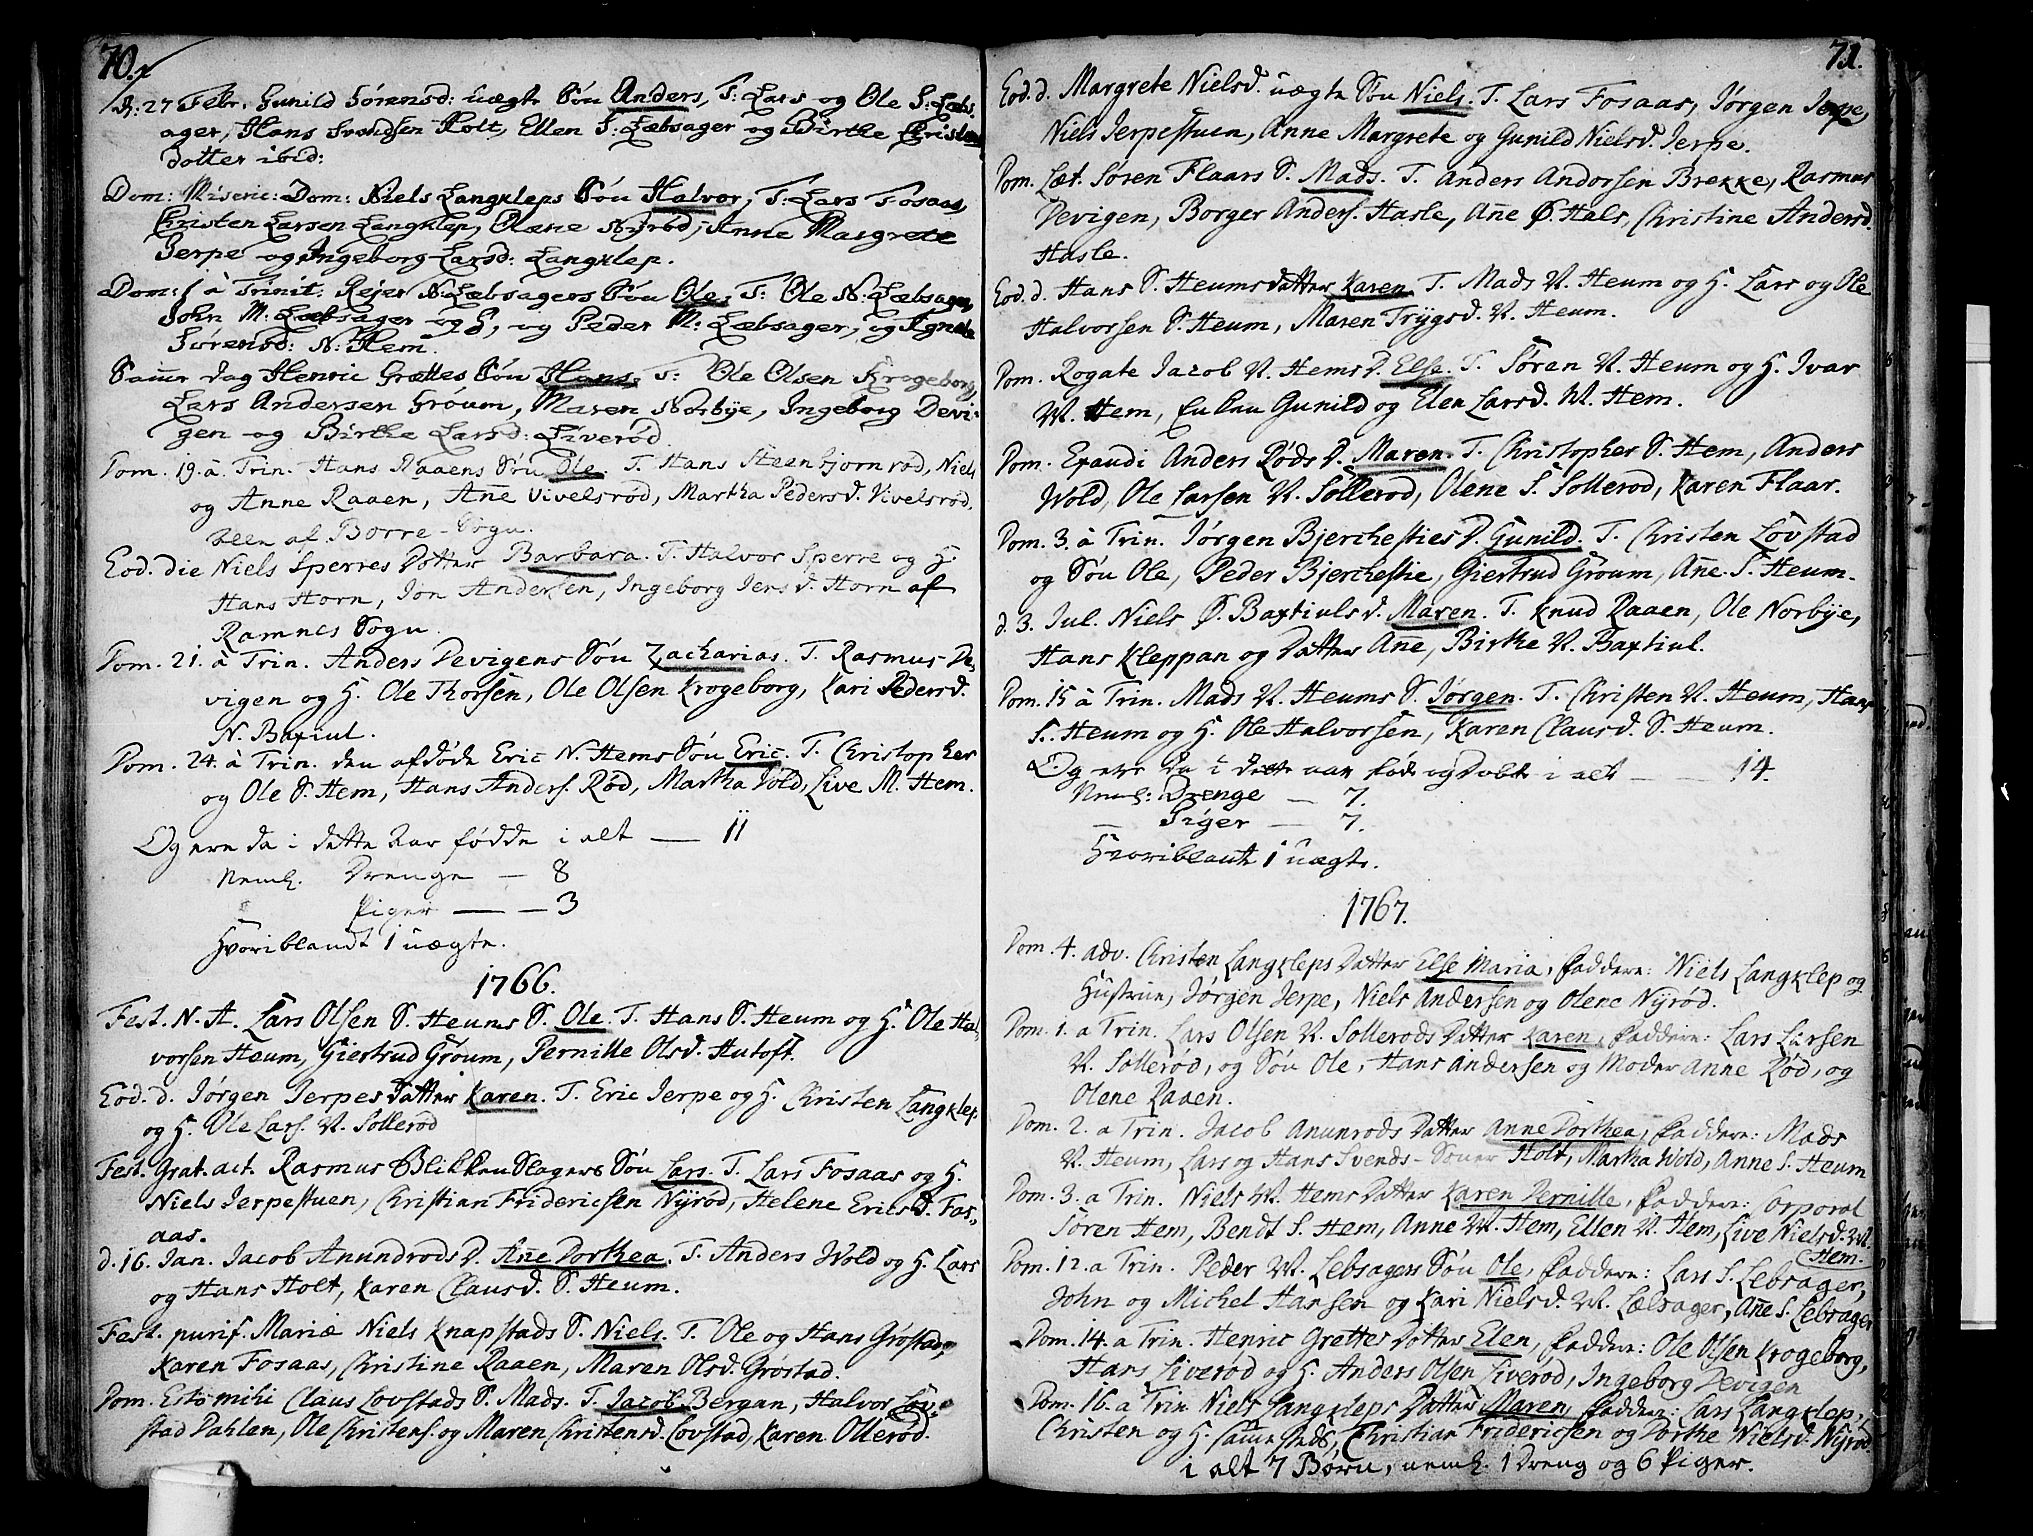 70.
d: 27 Febr. Gunild Sörensd: uægte Sön Anders, T: Lars og Ole S: Læbs-
ager, Hans Svendsen Holt, Ellen S: Læbsager og Birthe Christens
dotter ibid:
Dom: Miseric: Dom: Niels Langkleps Sön Halvor, T: Lars Fosaas,
Christen Larsen Langklep, Olæne Nyrød, Anne Margrete
Jerpe og Ingeborg Larsd: Langklep.
Dom: 1 à Trinit: Rejer N: Læbsagers Sön Ole, T: Ole N: Læbsager,
John M: Læbsager og H, og Peder M: Læbsager, og Agnete
Sörensd: N: Hem.
Samme dag Henric Grættes Sön Hans. T: Ole Olsen Krogeborg,
Lars Andersen Gröum, Maren Norbye, Ingeborg Devi-
gen og Birthe Larsd: Liverød
Dom. 19. à Trin. Hans Raaens Sön Ole. T. Hans Steenbjornrød, Niels
og Anne Raaen, Anne Vivelsrød, Martha Pedersd. Vivelsrød.
alle af Borre-Sogn.
Eod. die Niels Sperres Datter Barbara. T. Halvor Sperre og H.
Hans Horn, Jon Andersen, Ingeborg Jensd. Horn af
Ramnes Sogn.
Dom. 21. à Trin. Anders Devigens Sön Zacharias. T. Rasmus De-
vigen og H. Ole Thorsen, Ole Olsen Krogeborg, Kari Pedersd.
N. Baxtiul.
Dom. 24. à Trin. den afdöde Eric N. Hems Sön Eric. T. Christopher
og Ole S. Hem, Hans Anders. Rød, Martha Vold, Live M. Hem.
Og ere da i dette Aar fødde i alt — 11
Neml. Drenge — 8
Piger — 3
Hvoriblandt 1 uægte.
1766.
Fest. N. A. Lars Olsen S. Heums S. Ole. T. Hans S. Heum og H. Ole Hal-
vorsen Heum, Giertrud Gröum, Pernille Olsd. Hutoft.
Eod. d. Jörgen Jerpes Datter Karen. T. Eric Jerpe og H. Christen Langklep
og H. Ole Lars. V. Sollerød
Fest. Grat. act. Rasmus Blikkenslagers Sön Lars. T. Lars Fosaas og H.
Niels Jerpestuen, Christian Fridericsen Nyrød, Helene Ericsd. Fos-
aas.
d. 16. Jan. Jacob Anundrods D. Ane Dorthea. T. Anders Wold og H. Lars
og Hans Holt, Karen Clausd. S. Heum.
Fest. purif. Mariæ Niels Knapstads S. Niels. T. Ole og Hans Gröstad,
Karen Fosaas, Christine Raaen, Maren Olsd. Gröstad.
Dom. Esto mihi Claus Lovstads S. Mads. T. Jacob Bergan, Halvor Löv-
stad Dahlen, Ole Christens. og Maren Christensd. Lovstad, Karen Ollerød.
71.
Eod. d. Margrete Nielsd. uægte Sön Niels. T. Lars Fosaas, Jörgen Jerpe,
Niels Jerpestuen, Anne Margrete og Gunild Nielsd. Jerpe.
Dom. Læt. Sören Flaars S. Mads. T. Anders Andorsen Brekke, Rasmus
Devigen, Borger Anders. Hasle, Ane Ø. Hals, Christine Andersd.
Hasle.
Eod. d. Hans S. Heums Datter Karen. T. Mads V. Heum og H. Lars og Ole
Halvorsen S. Heum, Maren Trygsd. V. Heum.
Dom. Rogate Jacob V. Hems D. Else. T. Sören V. Heum og H. Ivar
W. Hem, Enken Gunild og Elen Larsd. W. Hem.
Dom. Exaudi Anders Röds D. Maren. T. Christopher S. Hem, Anders
Wold, Ole Larsen V. Sollerod, Olene S. Sollerod, Karen Flaar.
Dom. 3. à Trin. Jörgen Bjerchesties D. Gunild. T. Christen Lövstad
og Sön Ole, Peder Bjerchestie, Giertrud Gröum, Ane S. Heum.
d. 3. Jul. Niels Ø. Baxtiuls D. Maren. T. Knud Raaen, Ole Norbye,
Hans Kleppan og Datter Ane, Birthe V. Baxtiul.
Dom. 15 à Trin. Mads V. Heums S. Jörgen. T. Christen V. Heum, Hans
S. Heum og H. Ole Halvorsen, Karen Clausd. S. Heum.
Og ere da i dette aar föde og Döbte i alt — 14.
Neml: Drenge — 7.
— Piger — 7.
Hvoriblant 1 uægte.
1767.
Dom. 4. adv. Christen Langkleps Datter Else Maria, Faddere: Niels Langklep og
Hustrue, Jörgen Jerpe, Niels Andersen og Olene Nyrød.
Dom. 1. a Trin. Lars Olsen V. Sollerods Datter Karen, Faddere: Lars Larsen
V. Sollerød, og Sön Ole, Hans Andersen og Moder Anne Rød, og
Olene Raaen.
Dom. 2. a Trin. Jacob Anunrods Datter Anne Dorthea, Faddere: Mads
V. Heum, Lars og Hans Svends-Sonner Holt, Martha Wold, Anne S. Heum
Dom. 3. a Trin. Niels W. Hems Datter Karen Pernille, Faddere: Corporal
Sören Hem, Bendt S. Hem, Anne W. Hem, Ellen V. Hem, Live Nielsd. W.
Hem.
Dom. 12. a Trin. Peder W. Lebsagers Sön Ole, Faddere: Lars S. Lebsager,
John og Michel Hansen og Kari Nielsd. W. Lælsager, Ane S. Lebsager
Dom. 14. a Trin. Henric Grettes Datter Elen, Faddere: Ole Olsen Krogeborg,
Hans Liverød og H. Anders Olsen Liverød, Ingeborg Devigen
Dom. 16. a Trin Niels Langkleps Datter Maren, Faddere: Lars Langklep,
Christen og H. sammesteds, Christian Fridericsen og Dorthe Nielsd. Nyrød
i alt 7 Börn, neml. 1 Dreng og 6 Piger.